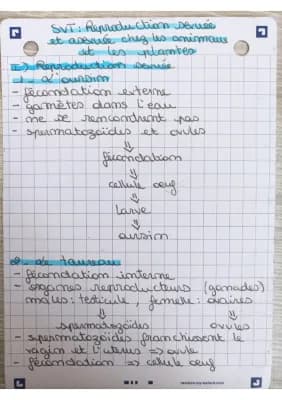 SVT : Reproduction sexuée
et asexuée chez les animaux
et les plantes
I) Reproduction sexuée
1 - L'oursin
- fécondation externe
- gamètes dans l'eau
- ne se rencontrent pas
- spermatozoïdes et ovules
⇓
fécondation
⇓
cellule oeuf
⇓
larve
⇓
oursin
2 - Le taureau
- fécondation interne
- organes reproducteurs (gonades)
mâles : testicule, femelle : ovaires
⇓ ⇓
spermatozoïdes ovules
- spermatozoïdes franchissent le
vagin et l'uterus => ovule
- fécondation => cellule oeuf